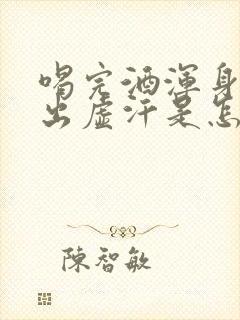 喝完酒渾身
出虛汗是怎
陳智敏